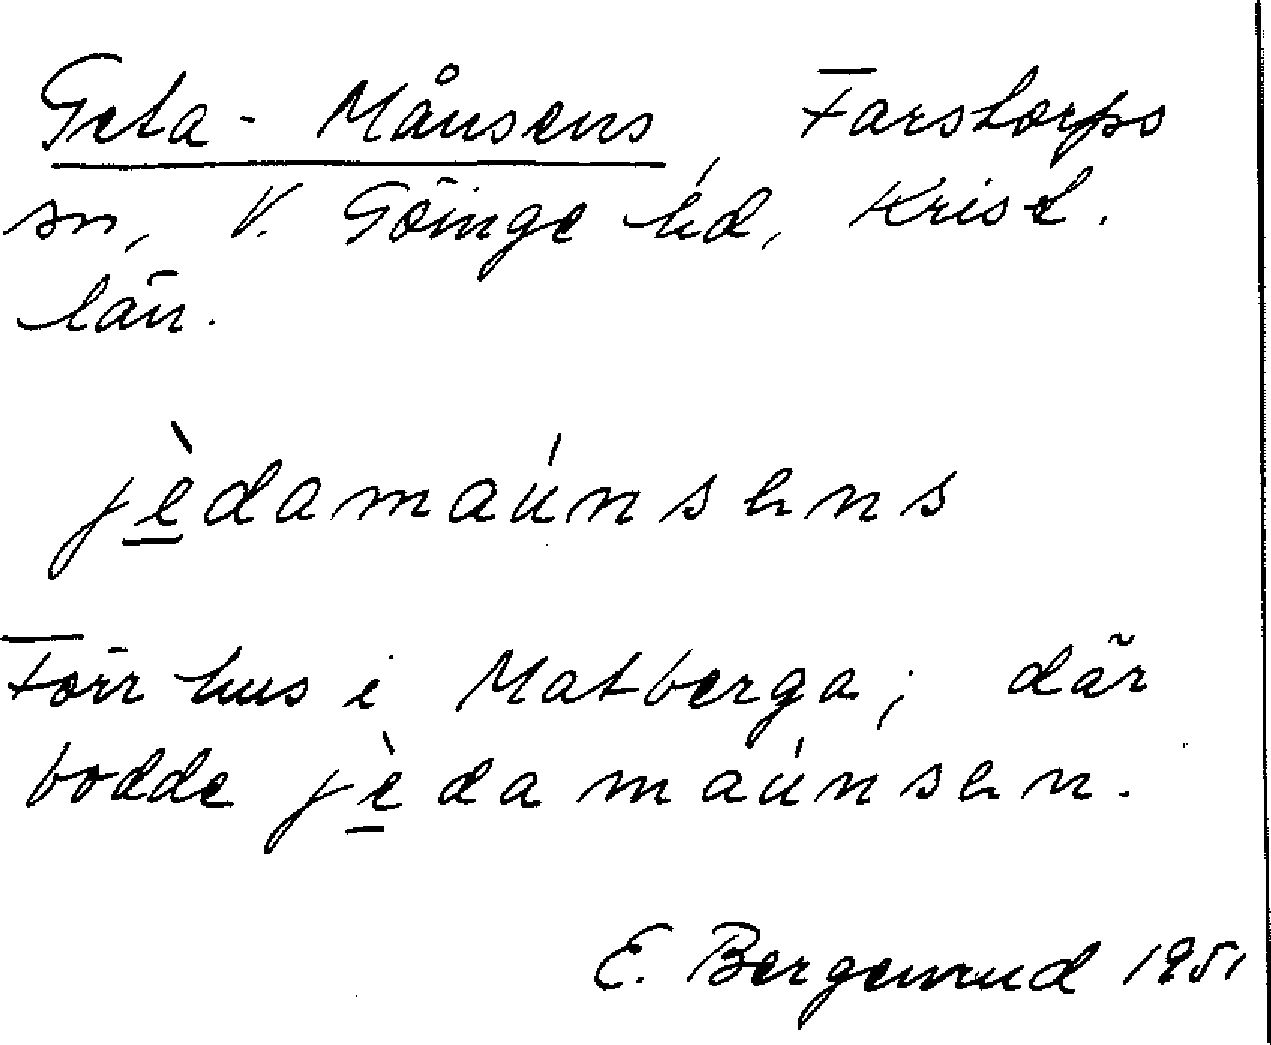 Geta-Månsens, Farstorps
sn, V. Göinge hd, Krist.
län.
jèdamaúnsens
Förr hus i Matberga; där
bodde jèdamaúnsen.
E. Bergenrud 1951